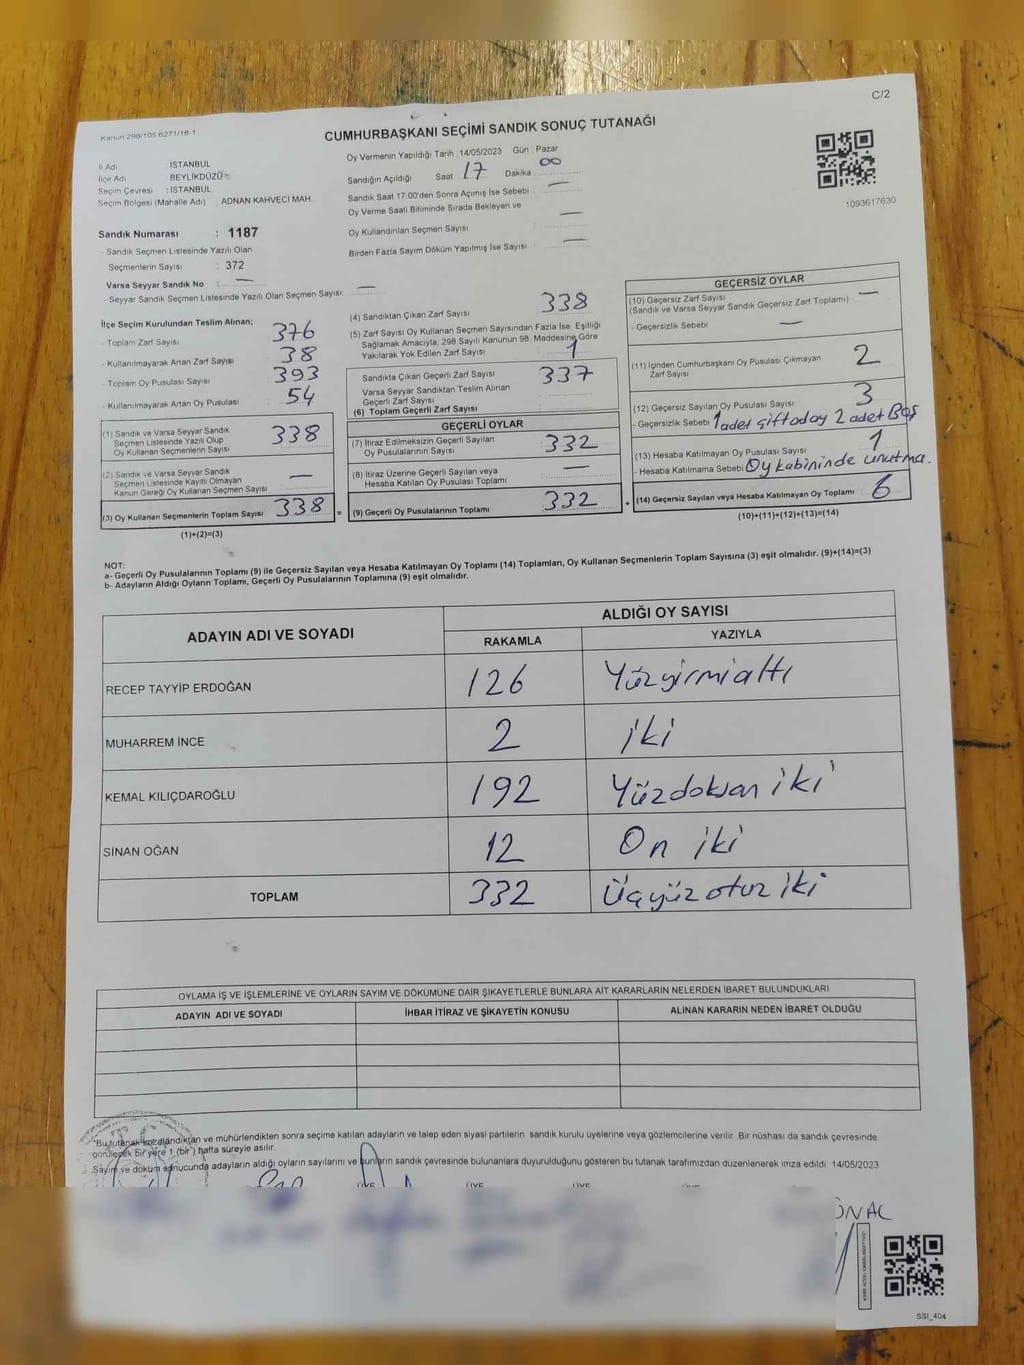 C/2
Kanun 298/105 6271/18-1
CUMHURBAŞKANI SEÇİMİ SANDIK SONUÇ TUTANAĞI
İl Adı İSTANBUL
İlçe Adı BEYLİKDÜZÜ
Seçim Çevresi : İSTANBUL
Seçim Bölgesi (Mahalle Adı) : ADNAN KAHVECİ MAH.
Sandık Numarası : 1187
- Sandık Seçmen Listesinde Yazılı Olan
Seçmenlerin Sayısı : 372
Varsa Seyyar Sandık No : —
- Seyyar Sandık Seçmen Listesinde Yazılı Olan Seçmen Sayısı: —
Oy Vermenin Yapıldığı Tarih :14/05/2023 Gün : Pazar
Sandığın Açıldığı Saat : 17 Dakika : 00
Sandık Saat 17:00'den Sonra Açımış İse Sebebi : —
Oy Verme Saati Bitiminde Sırada Bekleyen ve
Oy Kullandırılan Seçmen Sayısı : —
Birden Fazla Sayım Döküm Yapılmış İse Sayısı : —
1093617630
İlçe Seçim Kurulundan Teslim Alınan;
- Toplam Zarf Sayısı : 376
- Kullanılmayarak Artan Zarf Sayısı : 38
- Toplam Oy Pusulası Sayısı : 393
- Kullanılmayarak Artan Oy Pusulası : 54
(1) Sandık ve Varsa Seyyar Sandık
Seçmen Listesinde Yazılı Olup
Oy Kullanan Seçmenlerin Sayısı : 338
(2) Sandık ve Varsa Seyyar Sandık
Seçmen Listesinde Kayıtlı Olmayan
Kanun Gereği Oy Kullanan Seçmen Sayısı : —
(3) Oy Kullanan Seçmenlerin Toplam Sayısı : 338 =
(1)+(2)=(3)
(4) Sandıktan Çıkan Zarf Sayısı : 338
(5) Zarf Sayısı Oy Kullanan Seçmen Sayısından Fazla İse, Eşitliği
Sağlamak Amacıyla, 298 Sayılı Kanunun 98. Maddesine Göre
Yakılarak Yok Edilen Zarf Sayısı : 1
Sandıkta Çıkan Geçerli Zarf Sayısı : 337
Varsa Seyyar Sandıktan Teslim Alınan
Geçerli Zarf Sayısı :
(6) Toplam Geçerli Zarf Sayısı :
GEÇERLİ OYLAR
(7) İtiraz Edilmeksizin Geçerli Sayılan
Oy Pusulasının Sayısı : 332
(8) İtiraz Üzerine Geçerli Sayılan veya
Hesaba Katılan Oy Pusulası Toplamı : —
(9) Geçerli Oy Pusulalarının Toplamı : 332 +
GEÇERSİZ OYLAR
(10) Geçersiz Zarf Sayısı : —
(Sandık ve Varsa Seyyar Sandık Geçersiz Zarf Toplamı)
- Geçersizlik Sebebi : —
(11) İçinden Cumhurbaşkanı Oy Pusulası Çıkmayan
Zarf Sayısı : 2
(12) Geçersiz Sayılan Oy Pusulası Sayısı : 3
- Geçersizlik Sebebi : 1 adet çiftaday 2 adet Boş
(13) Hesaba Katılmayan Oy Pusulası Sayısı : 1
- Hesaba Katılmama Sebebi : Oy kabininde unutma.
(14) Geçersiz Sayılan veya Hesaba Katılmayan Oy Toplamı : 6
(10)+(11)+(12)+(13)=(14)
NOT:
a- Geçerli Oy Pusulalarının Toplamı (9) ile Geçersiz Sayılan veya Hesaba Katılmayan Oy Toplamı (14) Toplamları, Oy Kullanan Seçmenlerin Toplam Sayısına (3) eşit olmalıdır. (9)+(14)=(3)
b- Adayların Aldığı Oyların Toplamı, Geçerli Oy Pusulalarının Toplamına (9) eşit olmalıdır.
ADAYIN ADI VE SOYADI ALDIĞI OY SAYISI
RAKAMLA YAZIYLA
RECEP TAYYİP ERDOĞAN 126 Yüzyirmialtı
MUHARREM İNCE 2 iki
KEMAL KILIÇDAROĞLU 192 Yüzdoksan iki
SİNAN OĞAN 12 On iki
TOPLAM 332 Üçyüz otuz iki
OYLAMA İŞ VE İŞLEMLERİNE VE OYLARIN SAYIM VE DÖKÜMÜNE DAİR ŞİKAYETLERLE BUNLARA AİT KARARLARIN NELERDEN İBARET BULUNDUKLARI
ADAYIN ADI VE SOYADI İHBAR İTİRAZ VE ŞİKAYETİN KONUSU ALINAN KARARIN NEDEN İBARET OLDUĞU
*Bu tutanak imzalandıktan ve mühürlendikten sonra seçime katılan adayların ve talep eden siyasi partilerin sandık kurulu üyelerine veya gözlemcilerine verilir. Bir nüshası da sandık çevresinde
görülecek bir yere 1 (bir) hafta süreyle asılır.
Sayım ve döküm sonucunda adayların aldığı oyların sayılarını ve bunların sandık çevresinde bulunanlara duyurulduğunu gösteren bu tutanak tarafımızdan düzenlenerek imza edildi 14/05/2023
ÜYE ÜYE ÜYE
SSI_404